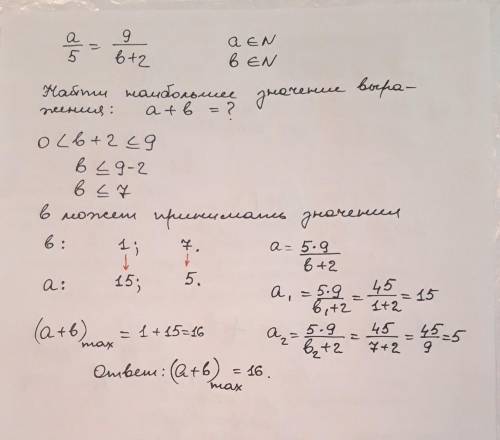 a/5 = 9/(b+2)   a ∈ N
b ∈ N
Найти наибольшее значение выра-
жения: a + b = ?
0 < b + 2 ≤ 9
b ≤ 9-2
b ≤ 7
b может принимать значения
b: 1; 7.
a: 15; 5.
a = 5·9/(b+2)
a₁ = 5·9/(b₁+2) = 45/(1+2) = 15
(a+b)max = 1+15=16
a₂ = 5·9/(b₂+2) = 45/(7+2) = 45/9 = 5
Ответ: (a+b)max = 16.